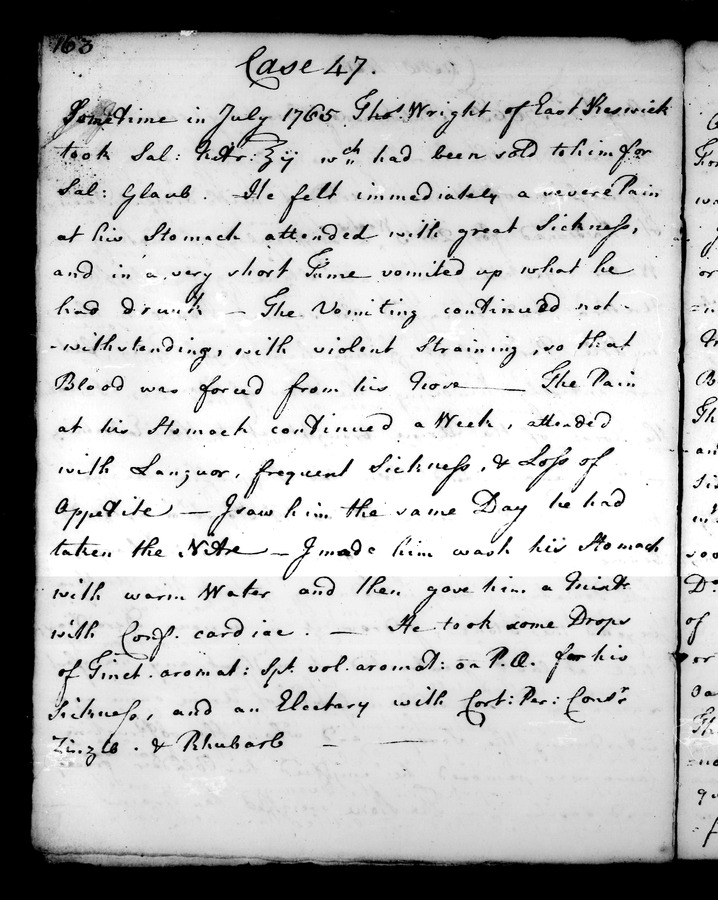 163
Case 47.
Sometime in July 1765 Thos. Wright of East Keswick
took Sal: Nitr: ℥ij wch. had been sold to him for
Sal: Glaub. He felt immediately a severe Pain
at his Stomach attended with great Sickness,
and in a very short Time vomited up what he
had drunk — The Vomiting continued not-
-withstanding, with violent Straining, so that
Blood was forced from his Nose — The Pain
at his Stomach continued a Week, attended
with Languor, frequent Sickness, & Loss of
Appetite — I saw him the same Day he had
taken the Nitre — I made him wash his Stomach
with warm Water and then gave him a Mixt:
with Conf. cardiac. — He took some Drops
of Tinct. aromat: Spt. vol: aromat: ōa P.Æ. for his
Sickness, and an Electary with Cort: Per: Consr.
Zinzib. & Rhubarb —